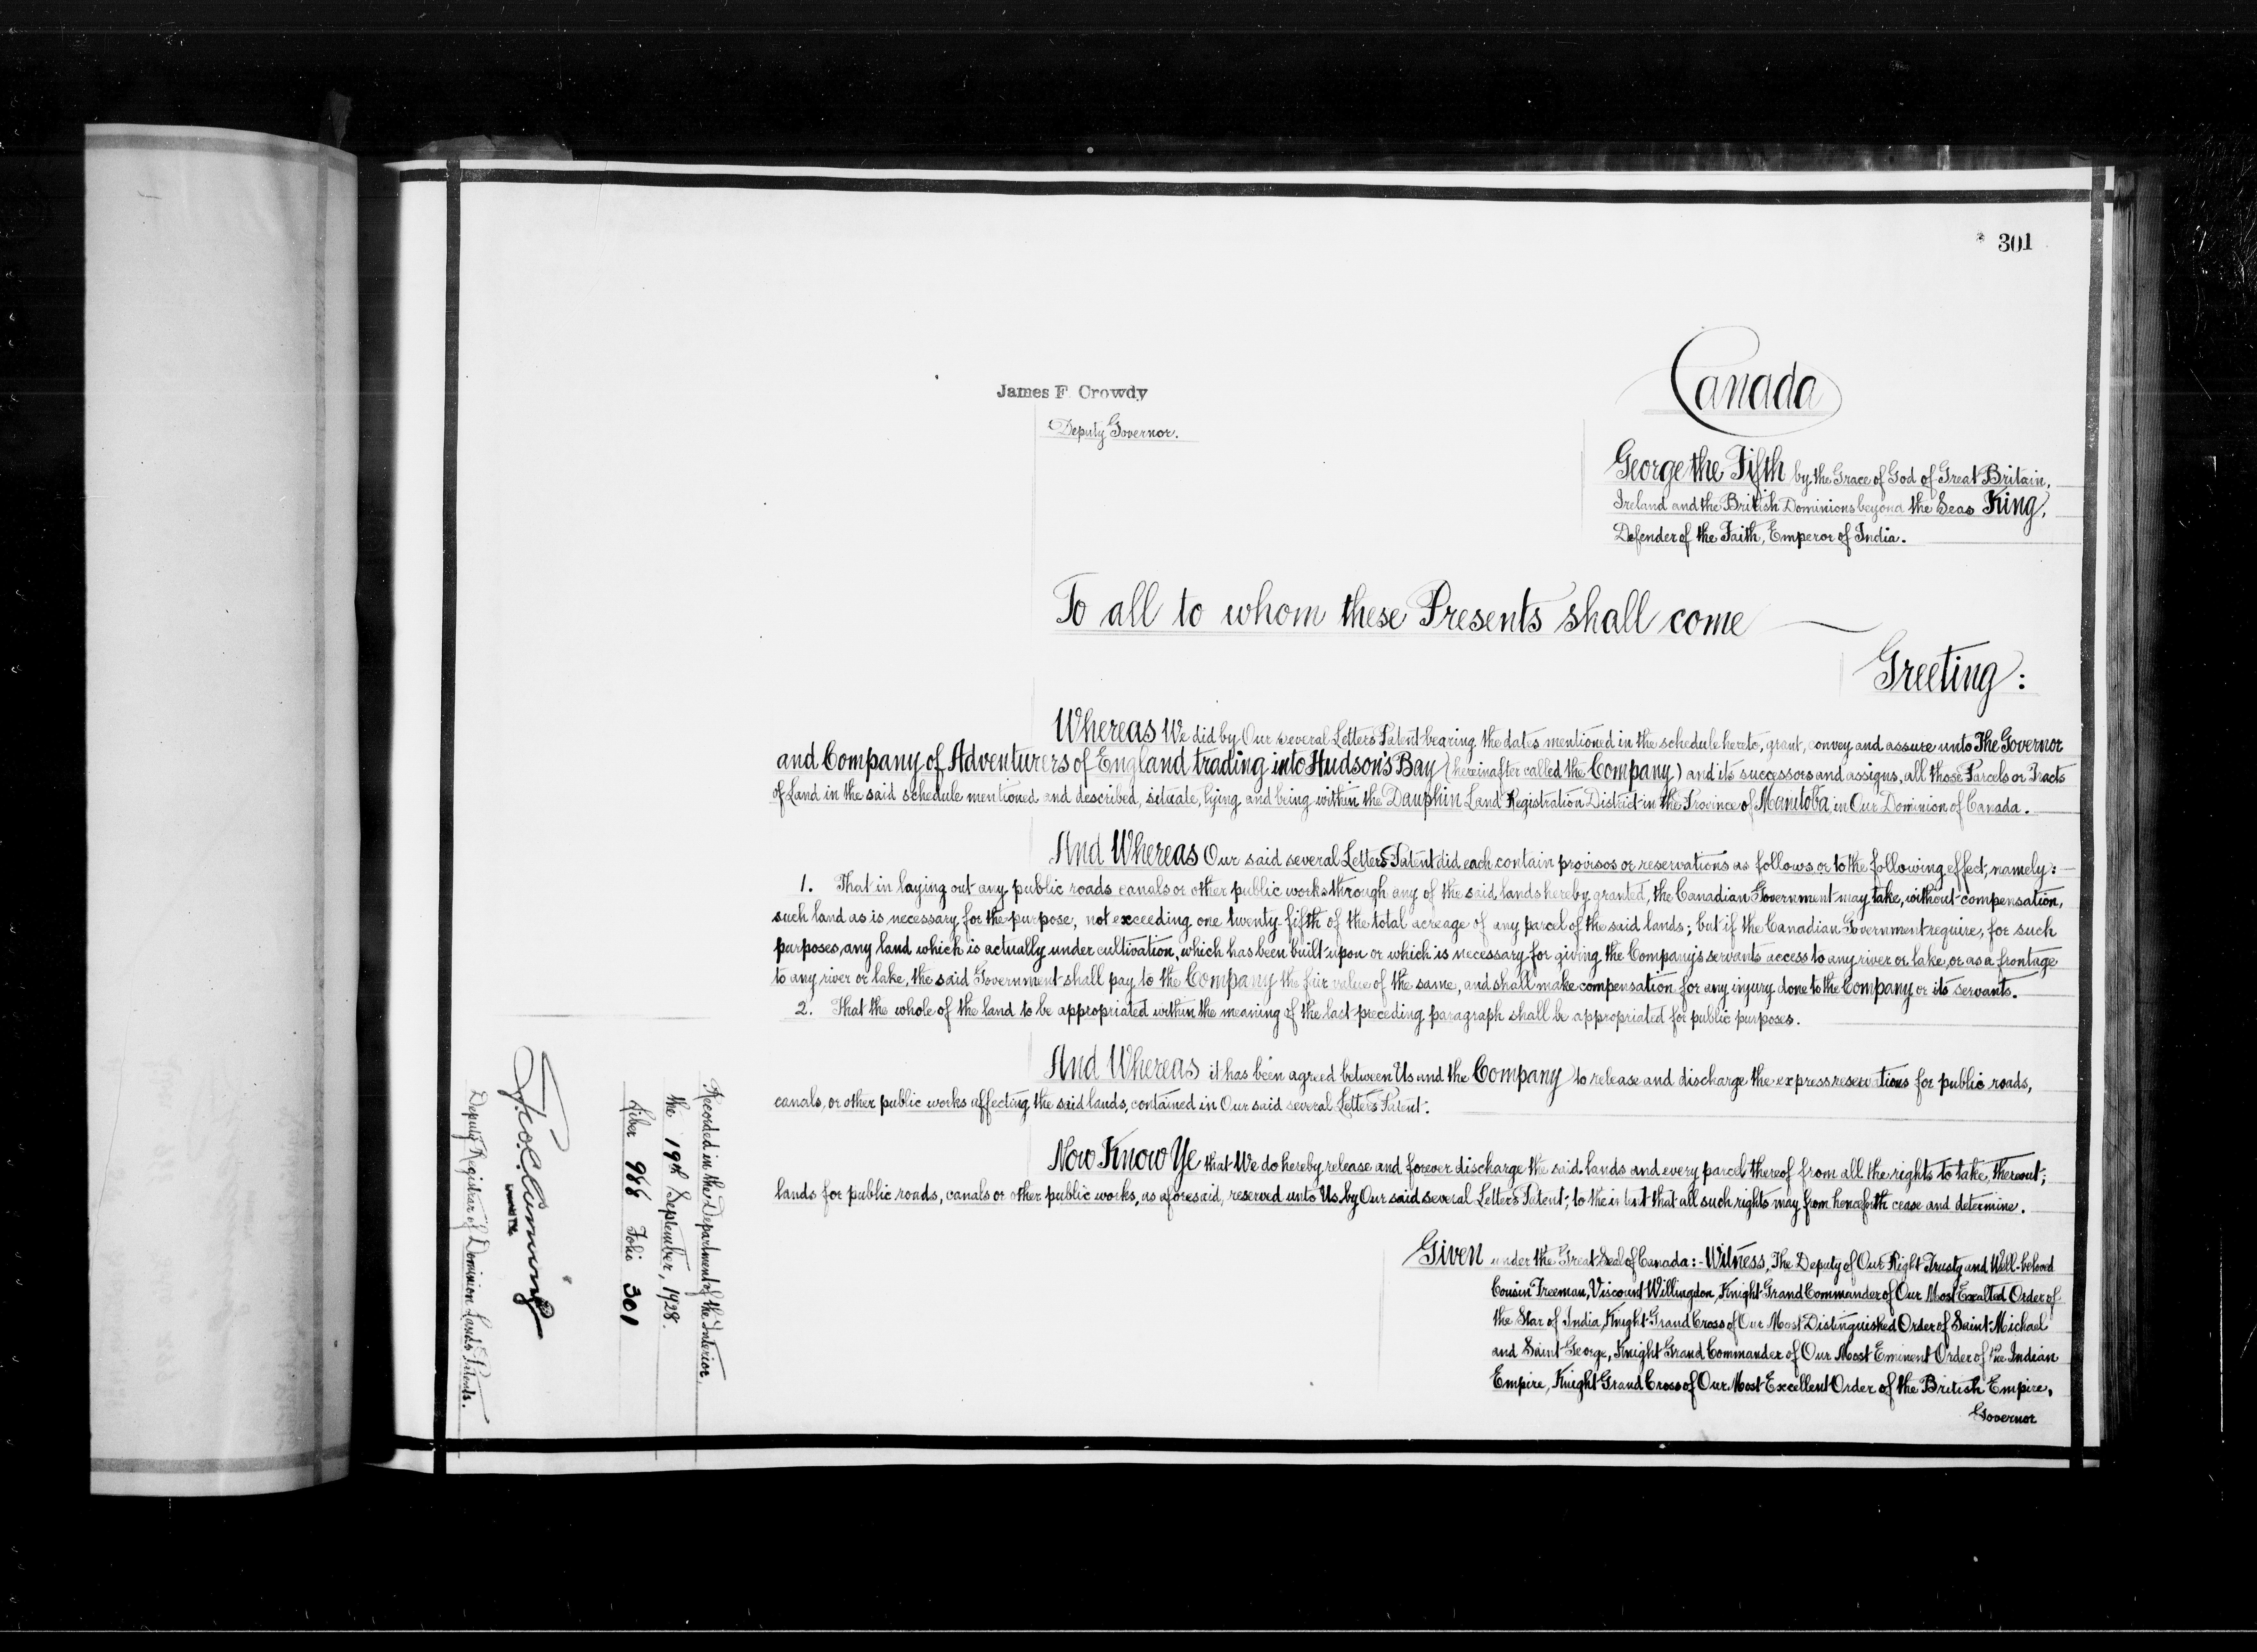 301
James F. Crowdy
Deputy Governor.
Canada
George the Fifth by the Grace of God of Great Britain,
Ireland and the British Dominions beyond the Seas King,
Defender of the Faith, Emperor of India.
To all to whom these Presents shall come
Greeting:
Whereas We did by Our several Letters Patent bearing the dates mentioned in the schedule hereto, grant, convey and assure unto The Governor
and Company of Adventurers of England trading into Hudson's Bay (hereinafter called the Company) and its successors and assigns, all those Parcels or Tracts
of Land in the said schedule mentioned and described, situate, lying and being within the Dauphin Land Registration District in the Province of Manitoba in Our Dominion of Canada.
And Whereas Our said several Letters Patent did each contain provisos or reservations as follows or to the following effect, namely:
1. That in laying out any public roads canals or other public works through any of the said lands hereby granted, the Canadian Government may take, without compensation,
such land as is necessary for the purpose, not exceeding one twenty-fifth of the total acreage of any parcel of the said lands; but if the Canadian Government require, for such
purposes, any land which is actually under cultivation, which has been built upon or which is necessary for giving the Company's servants access to any river or lake, or as a frontage
to any river or lake, the said Government shall pay to the Company the fair value of the same, and shall make compensation for any injury done to the Company or its servants.
2. That the whole of the land to be appropriated within the meaning of the last preceding paragraph shall be appropriated for public purposes.
And Whereas it has been agreed between Us and the Company to release and discharge the express reservations for public roads,
canals, or other public works affecting the said lands, contained in Our said several Letters Patent.
Now Know Ye that We do hereby release and forever discharge the said lands and every parcel thereof from all the rights to take, thereout,
lands for public roads, canals or other public works, as aforesaid, reserved unto Us by Our said several Letters Patent; to the intent that all such rights may from henceforth cease and determine.
Given under the Great Seal of Canada:- Witness, The Deputy of Our Right Trusty and Well-beloved
Cousin Freeman, Viscount Willingdon, Knight Grand Commander of Our Most Exalted Order of
the Star of India, Knight Grand Cross of Our Most Distinguished Order of Saint Michael
and Saint George, Knight Grand Commander of Our Most Eminent Order of the Indian
Empire, Knight Grand Cross of Our Most Excellent Order of the British Empire,
Governor
Recorded in the Department of the Interior,
the 19th September, 1928.
Liber 988 Folio 301
Deputy Registrar of Dominion Lands Patents.